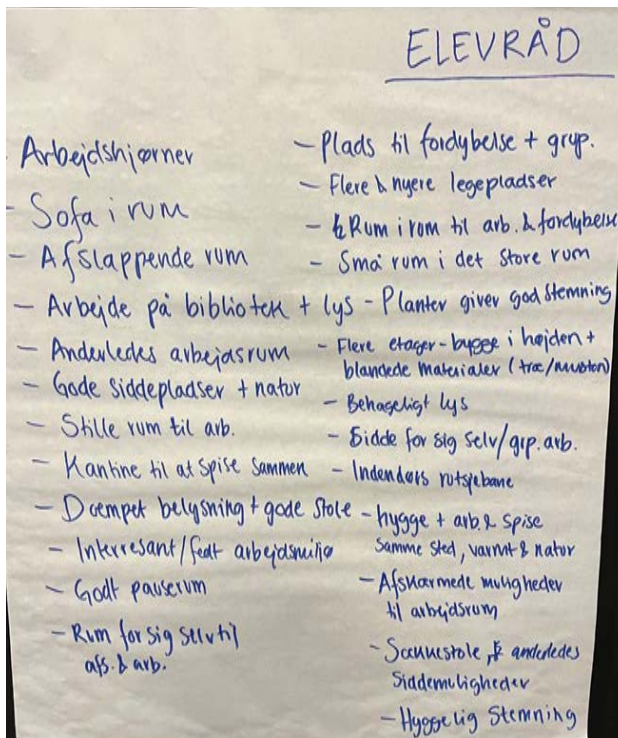 ELEVRÅD
- Arbejdshjørner
- Sofa i rum
- Afslappende rum
- Arbejde på bibliotek + lys
- Anderledes arbejdsrum
- Gode siddepladser + natur
- Stille rum til arb.
- Kantine til at spise sammen
- Dæmpet belysning + gode stole
- Interresant/fedt arbejdsmiljø
- Godt pauserum
- Rum for sig selv til
afs. & arb.
- Plads til fordybelse + grup.
- Flere & nyere legepladser
- Rum i rom til arb. & fordybelse
- Små rum i det store rum
- Planter giver god stemning
- Flere etager - bygge i højden +
blandede materialer (træ/mursten)
- Behageligt lys
- Sidde for sig selv/grp. arb.
- Indendørs rutsjebane
- hygge + arb. & spise
samme sted, varmt & natur
- Afskærmede muligheder
til arbejdsrum
- Saccosestole, anderledes
siddemuligheder
- Hyggelig stemning